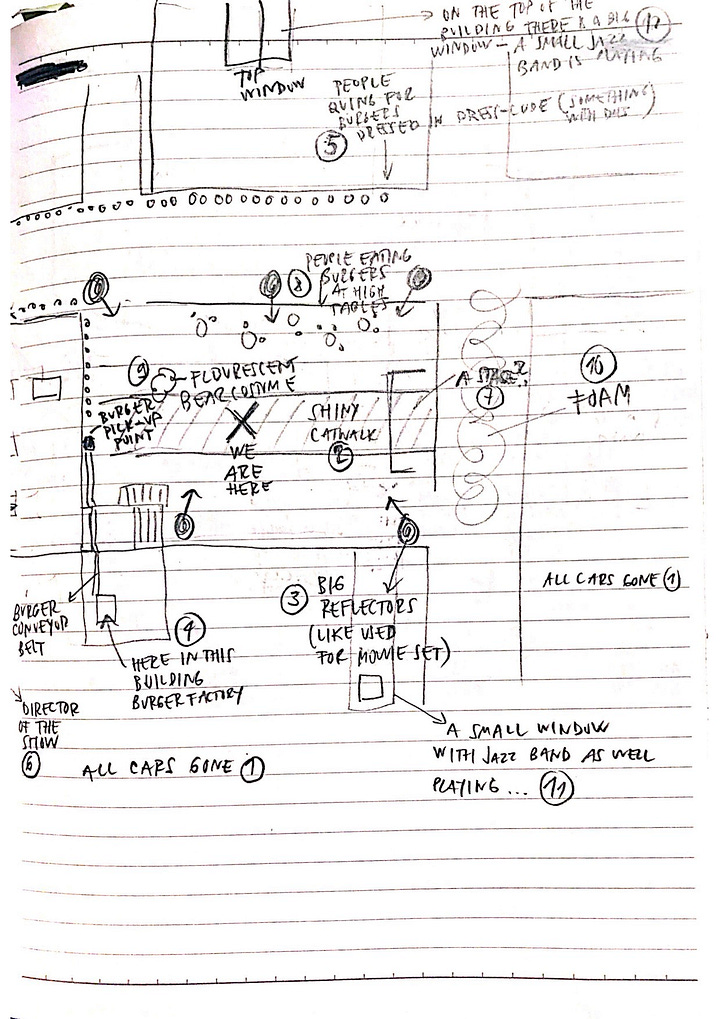 ON THE TOP OF THE
BUILDING THERE IS A BIG
WINDOW - A SMALL JAZZ
BAND IS PLAYING
12
TOP
WINDOW
PEOPLE
QUING FOR
BURGERS
DRESSED IN DRESS-CODE (SOMETHING
WITH DOTS)
5
8
PEOPLE EATING
BURGERS
AT HIGH
TABLES
9
FLOURESCENT
BEAR COSTUME
A STAGE
7
10
FOAM
BURGER
PICK-UP
POINT
SHINY
CATWALK
2
WE
ARE
HERE
ALL CARS GONE 1
3
BIG
REFLECTORS
(LIKE USED
FOR MOVIE SET)
BURGER
CONVEYOR
BELT
4
HERE IN THIS
BUILDING
BURGER FACTORY
DIRECTOR
OF THE
SHOW
6
ALL CARS GONE 1
A SMALL WINDOW
WITH JAZZ BAND AS WELL
PLAYING... 11